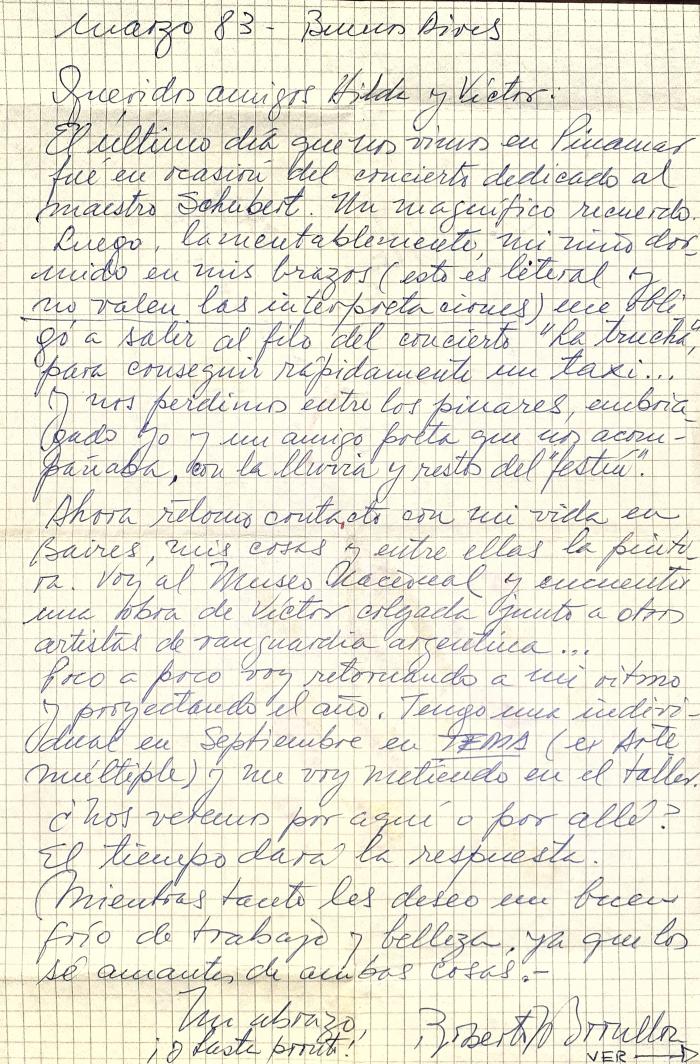 Marzo 83 - Buenos Aires
Queridos amigos Hilda y Víctor:
El último día que nos vimos en Pinamar
fué en ocasión del concierto dedicado al
maestro Schubert. Un magnífico recuerdo.
Luego, lamentablemente, mi niño dor-
mido en mis brazos (esto es literal y
no valen las interpretaciones) me obli
gó a salir al filo del concierto "La trucha",
para conseguir rápidamente un taxi...
Y nos perdimos entre los pinares, embria-
gado yo y un amigo poeta que nos acom-
pañaba, con la lluvia y resto del "festín".
Ahora retomo contacto con mi vida en
Baires, mis cosas y entre ellas la pintu
ra. Voy al Museo Nacional y encuentro
una obra de Víctor colgada junto a otros
artistas de vanguardia argentina...
Poco a poco voy retornando a mi ritmo
y proyectando el año. Tengo una indivi-
dual en Septiembre en TEMA (ex Arte
múltiple) y me voy metiendo en el taller.
¿Nos veremos por aquí o por allá?
El tiempo dará la respuesta.
Mientras tanto les deseo un buen
frío de trabajo y belleza, ya que los
sé amantes de ambas cosas.-
Un abrazo,
¡o hasta pronto!
Roberto
VER →